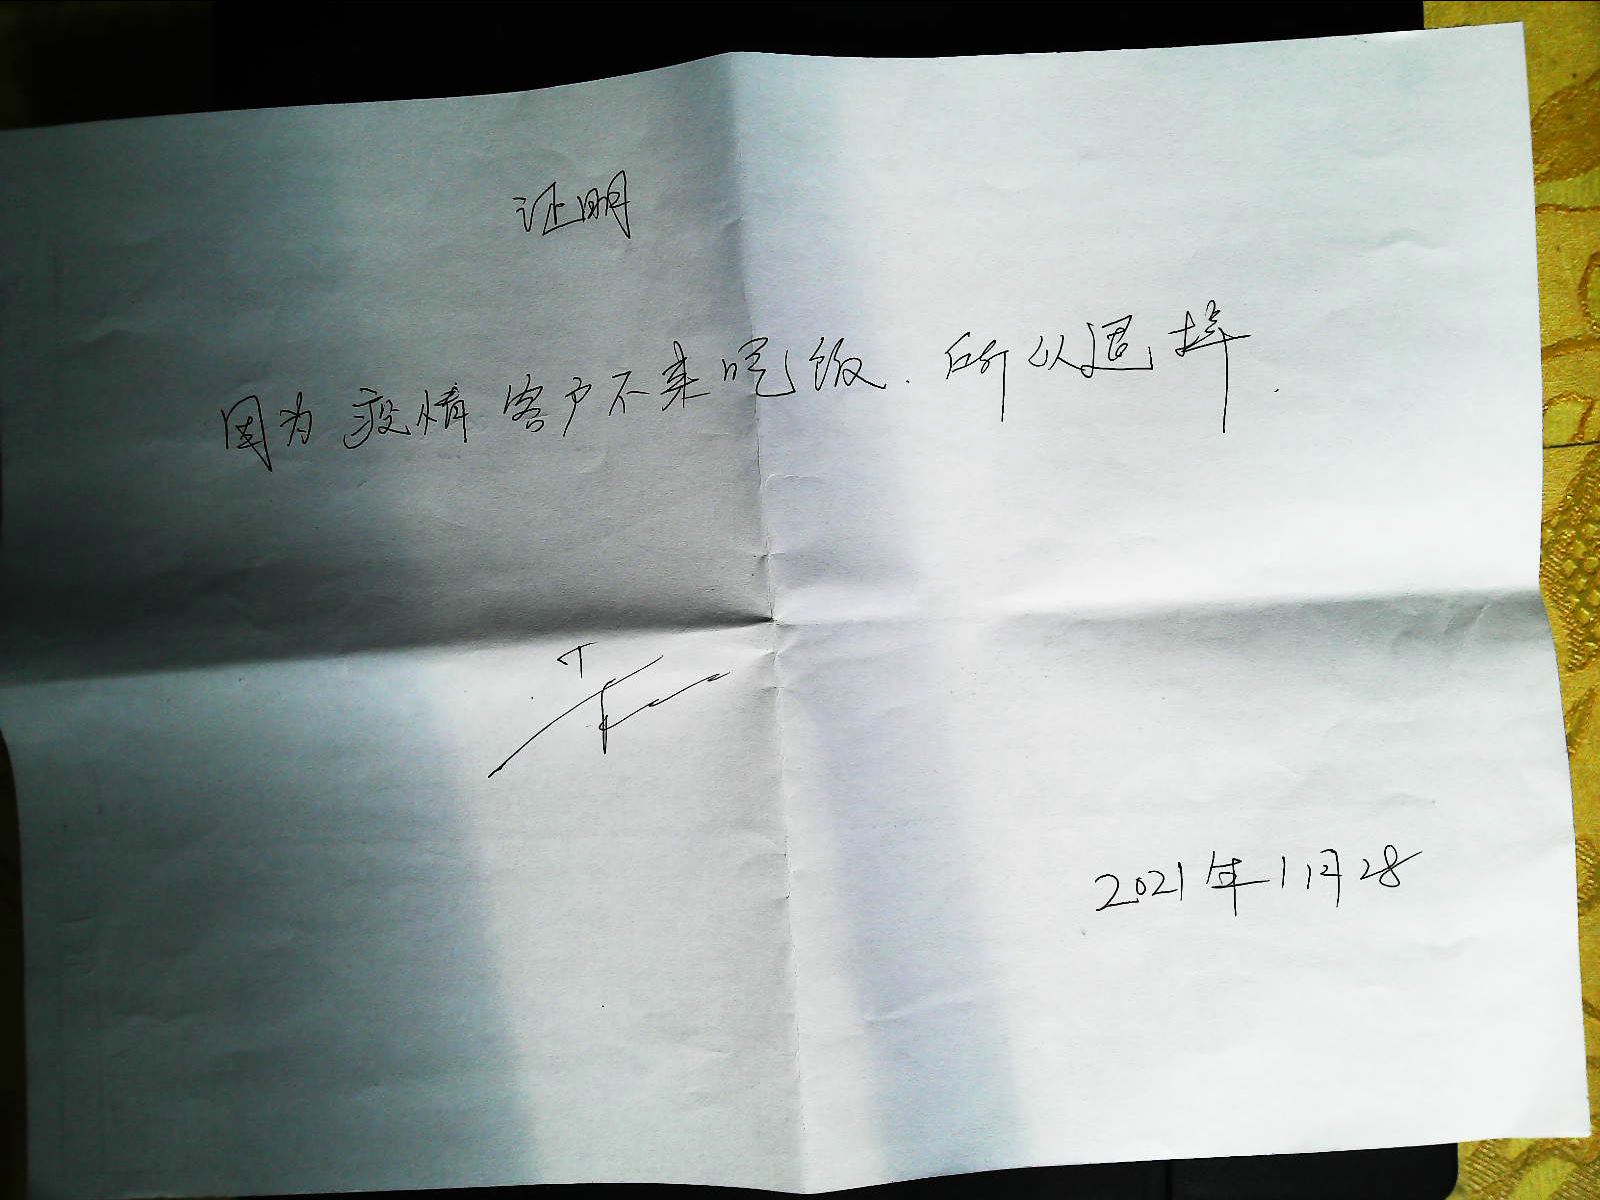 证明
因为疫情客户不来吃饭.所以退掉.
2021年11月28